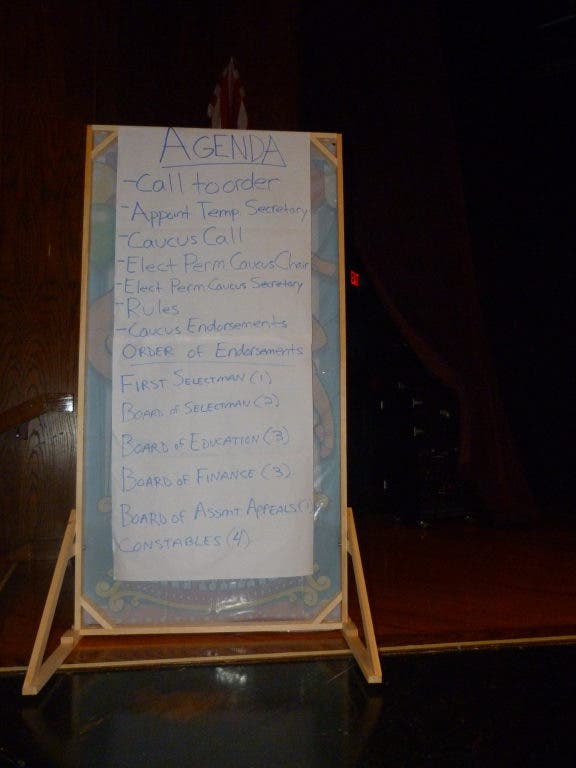 AGENDA
-Call to order
-Appoint Temp. Secretary
-Caucus Call
-Elect Perm Caucus Chair
-Elect Perm Caucus Secretary
-Rules
-Caucus Endorsements
ORDER of Endorsements
FIRST SELECTMAN (1)
BOARD of SELECTMAN (2)
BOARD of EDUCATION (3)
BOARD of FINANCE (3)
BOARD of ASSMT APPEALS (1)
CONSTABLES (4)